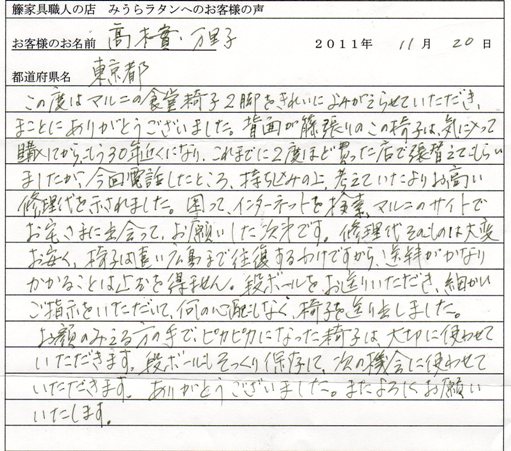 籐家具職人の店　みうらラタンへのお客様の声
お客様のお名前　高本貴　万里子　2011年　11月　20日
都道府県名　東京都
この度はマルニの食堂椅子2脚をきれいによみがえらせていただき、
まことにありがとうございました。背面が籐張りのこの椅子は、気に入って
購入してから、もう30年近くになり、これまでに2度ほど買った店で張替えてもらい
ましたが、今回電話したところ、持ち込みの上、考えていたよりお高い
修理代を示されました。困って、インターネットを検索、マルニのサイトで
お宅さまに出会って、お願いした次第です。修理代そのものは大変
お安く、椅子は遠い広島まで往復するわけですから、送料がかなり
かかることは止むを得ません。段ボールをお送りいただき、細かい
ご指示をいただいて、何の心配もなく、椅子を送り出しました。
お顔のみえる方の手で、ピカピカになった椅子は、大切に使わせて
いただきます。段ボールもそっくり保存して、次の機会に使わせて
いただきます。ありがとうございました。またよろしくお願い
いたします。